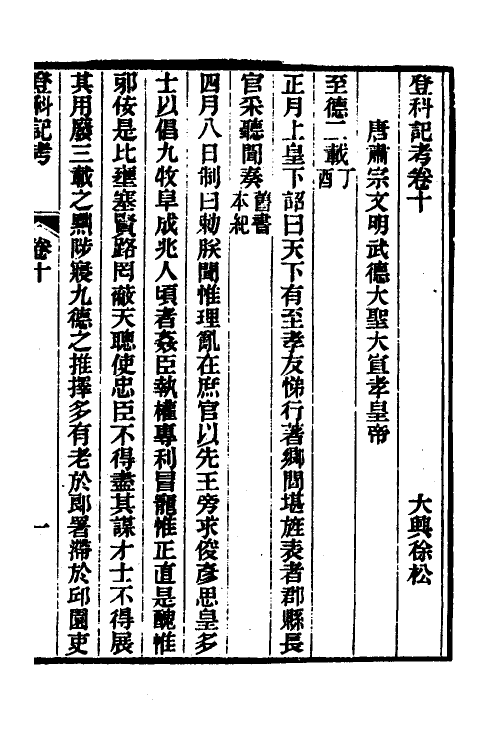 登科記考卷十　大興徐松
唐肅宗文明武德大聖大宣孝皇帝
至德二載丁酉
正月上皇下詔曰天下有至孝友悌行著鄉閭堪旌表者郡縣長
官采聽聞奏舊書本紀
四月八日制曰勅朕聞惟理亂在庶官以先王旁求俊彥思皇多
士以倡九牧阜成兆人頃者姦臣執權專利冒寵惟正直是醜惟
邪佞是比壅塞賢路罔蔽天聰使忠臣不得盡其謀才士不得展
其用廢三載之黜陟寢九德之推擇多有老於郎署滯於邱園吏
登科記考　卷十　一